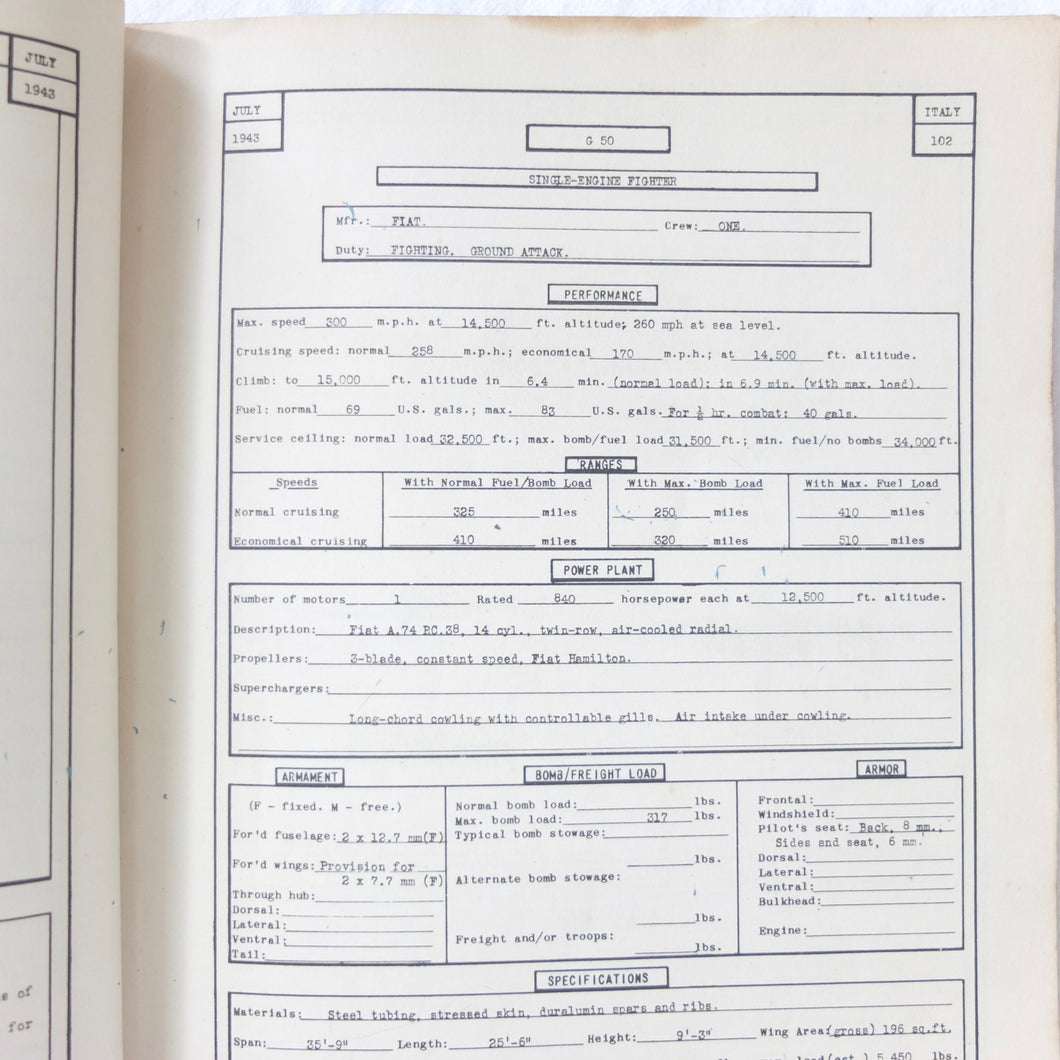 JULY
1943
s of
for
JULY
1943
G 50
ITALY
102
SINGLE-ENGINE FIGHTER
Mfr.: FIAT. Crew: ONE.
Duty: FIGHTING. GROUND ATTACK.
PERFORMANCE
Max. speed 300 m.p.h. at 14,500 ft. altitude; 260 mph at sea level.
Cruising speed: normal 258 m.p.h.; economical 170 m.p.h.; at 14,500 ft. altitude.
Climb: to 15,000 ft. altitude in 6.4 min. (normal load); in 6.9 min. (with max. load).
Fuel: normal 69 U.S. gals.; max. 83 U.S. gals. For ½ hr. combat: 40 gals.
Service ceiling: normal load 32,500 ft.; max. bomb/fuel load 31,500 ft.; min. fuel/no bombs 34,000 ft.
RANGES
Speeds With Normal Fuel/Bomb Load With Max. Bomb Load With Max. Fuel Load
Normal cruising 325 miles 250 miles 410 miles
Economical cruising 410 miles 320 miles 510 miles
POWER PLANT
Number of motors 1 Rated 840 horsepower each at 12,500 ft. altitude.
Description: Fiat A.74 RC.38, 14 cyl., twin-row, air-cooled radial.
Propellers: 3-blade, constant speed, Fiat Hamilton.
Superchargers:
Misc.: Long-chord cowling with controllable gills. Air intake under cowling.
ARMAMENT
(F - fixed. M - free.)
For'd fuselage: 2 x 12.7 mm(F)
For'd wings: Provision for
2 x 7.7 mm (F)
Through hub:
Dorsal:
Lateral:
Ventral:
Tail:
BOMB/FREIGHT LOAD
Normal bomb load: lbs.
Max. bomb load: 317 lbs.
Typical bomb stowage:
lbs.
Alternate bomb stowage:
lbs.
Freight and/or troops:
lbs.
ARMOR
Frontal:
Windshield:
Pilot's seat: Back, 8 mm.,
Sides and seat, 6 mm.
Dorsal:
Lateral:
Ventral:
Bulkhead:
Engine:
SPECIFICATIONS
Materials: Steel tubing, stressed skin, duralumin spars and ribs.
Span: 35'-9" Length: 25'-6" Height: 9'-3" Wing Area(gross) 196 sq.ft.
load(est.) 5,450 lbs.